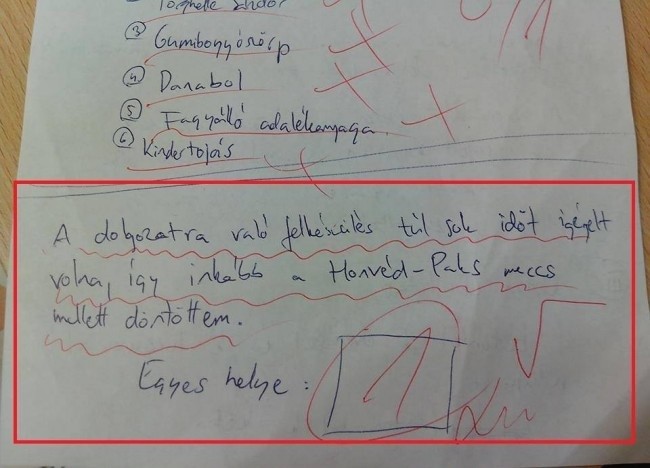 ③ Gumibogyószörp
④ Danabol
⑤ Fagyálló adalékanyaga
⑥ Kindertojás
A dolgozatra való felkészülés túl sok időt igényelt
volna, így inkább a Honvéd-Paks meccs
mellett döntöttem.
Egyes helye: 1